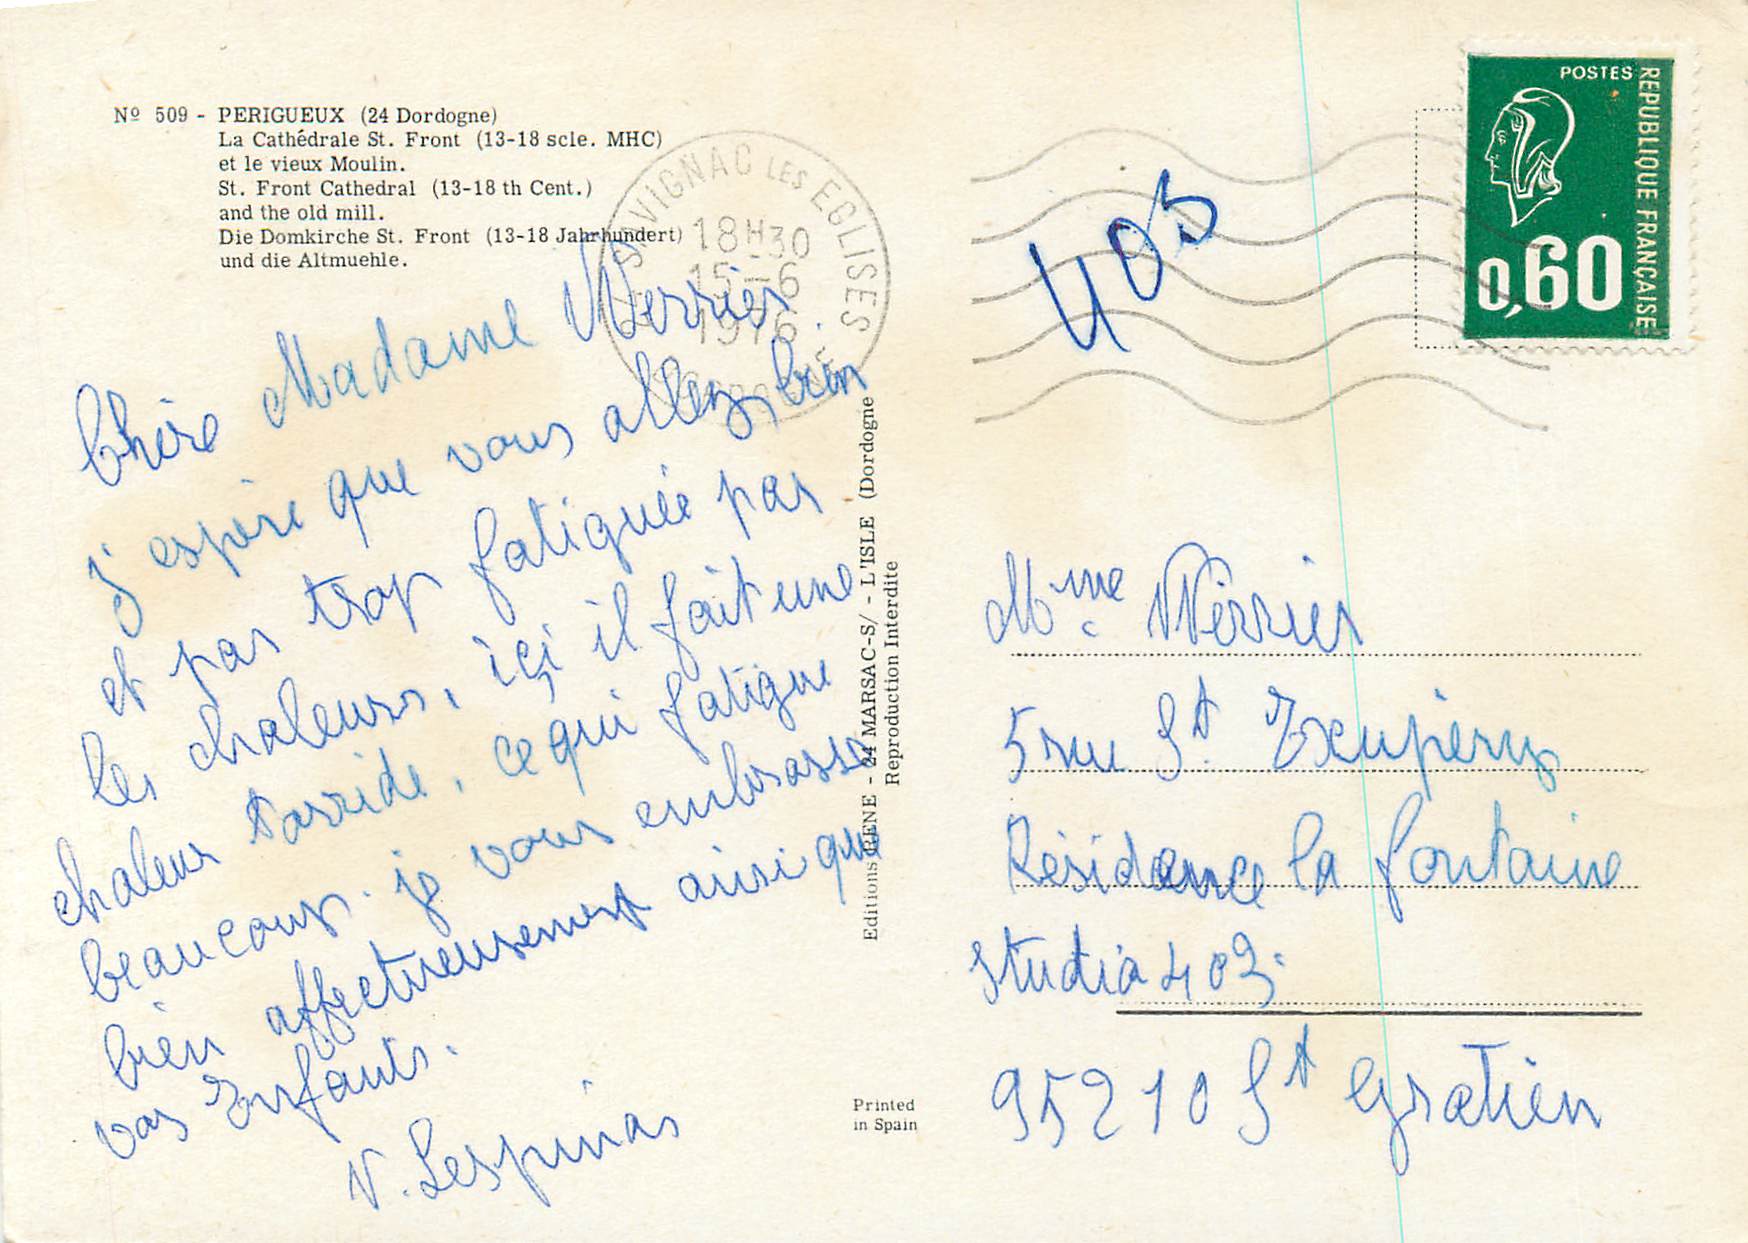 Nº 509 - PERIGUEUX (24 Dordogne)
La Cathédrale St. Front (13-18 scle. MHC)
et le vieux Moulin.
St. Front Cathedral (13-18 th Cent.)
and the old mill.
Die Domkirche St. Front (13-18 Jahrhundert)
und die Altmuehle.
SAVIGNAC LES EGLISES
18H30
15-6
1976
DORDOGNE
POSTES
REPUBLIQUE FRANÇAISE
0,60
403
Chère Madame Werrier.
j'espère que vous allez bien
et pas trop fatiguée par
les chaleurs, içi il fait une
chaleur torride, ce qui fatigue
beaucoup. je vous embrasse
bien affectueusement ainsi que
vos Enfants.
V. Lespinas
Editions RENE - 24 MARSAC-S/ - L'ISLE (Dordogne
Reproduction Interdite
Printed
in Spain
Mme Werrier
5 rue St Exupéry
Résidence la fontaine
Studio 403.
95210 St Gratien